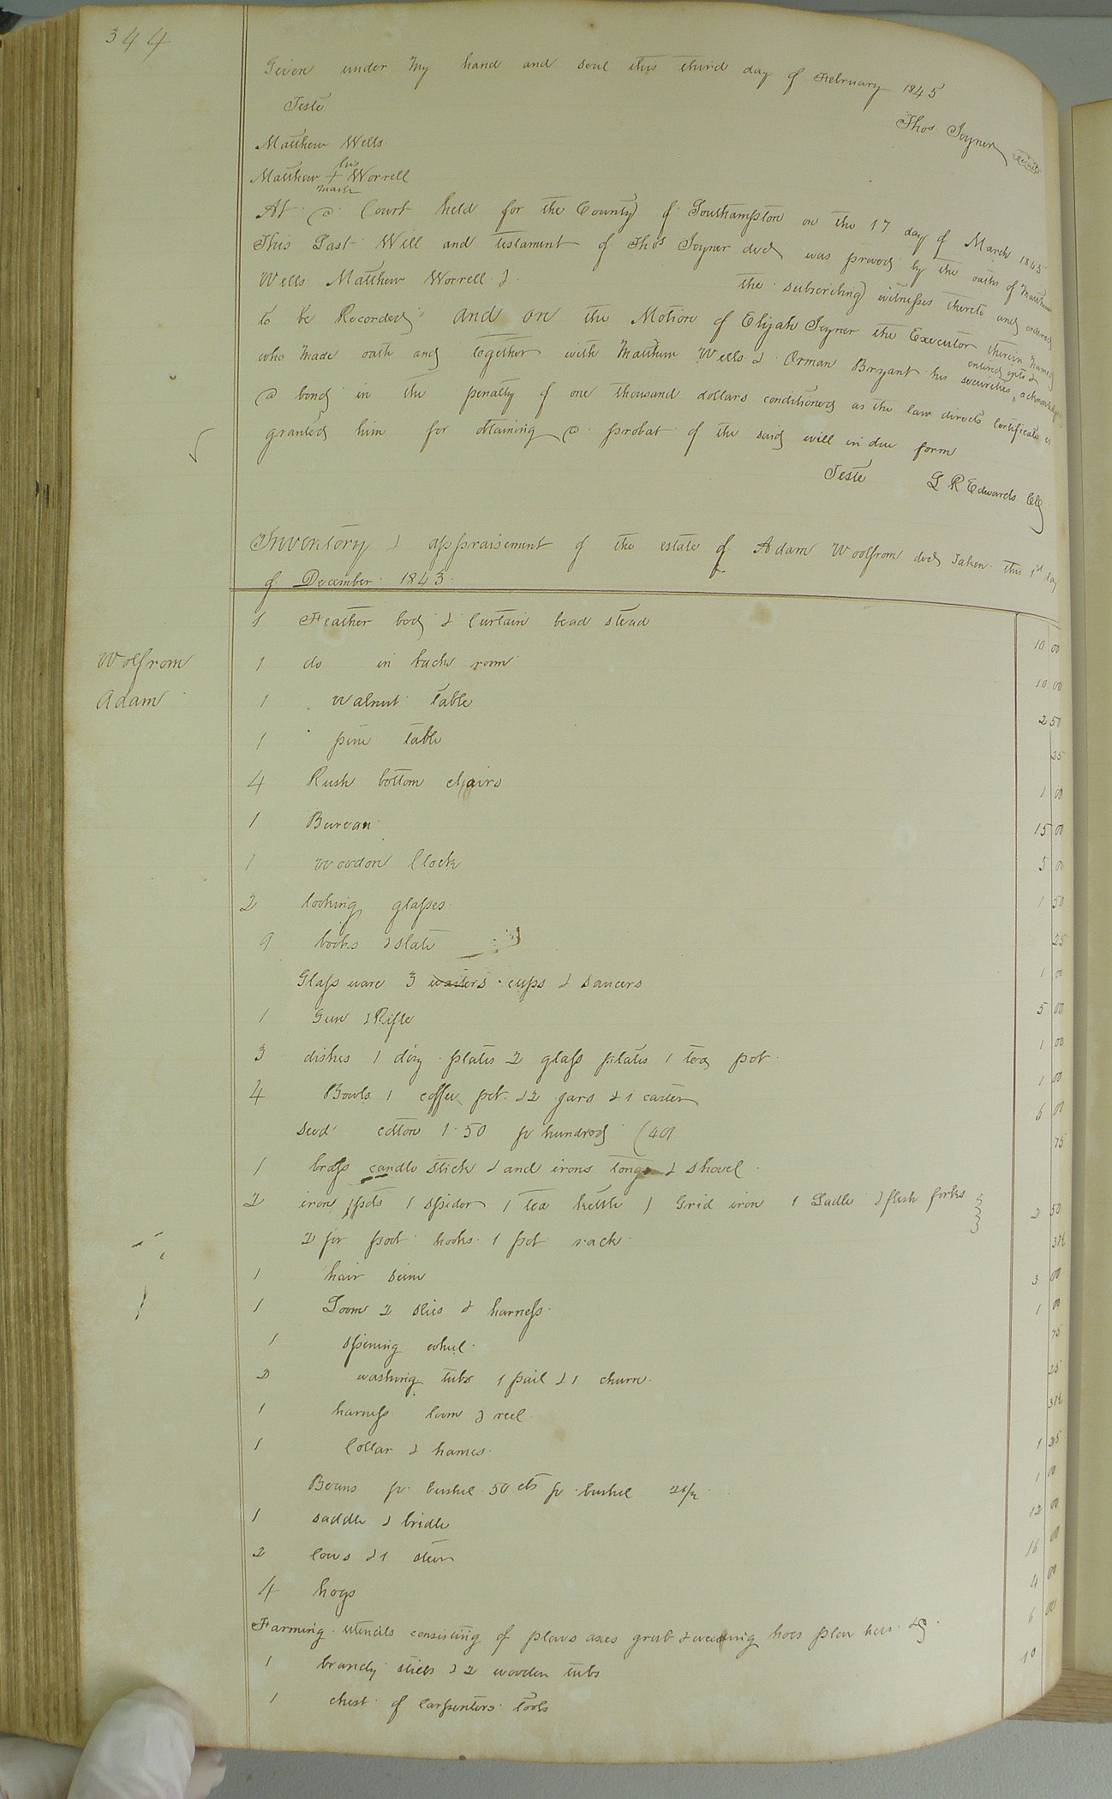 344
Given under my hand and seal this third day of February 1845
Teste
Thos Joyner (seal)
Matthew Wells
his
Matthew + Worrell
mark
At a Court held for the County of Southampton on the 17 day of March 1845
This Last Will and testament of Thos Joyner decd was proved by the oaths of Matthew
Wells Matthew Worrell & the subscribing witnesses thereto and ordered
to be Recorded and on the Motion of Elijah Joyner the Executor therein named
who made oath and together with Matthew Wells & Orman Bryant his securities, entered into & acknowledged
a bond in the penalty of one thousand dollars conditioned as the law directs Certificate is
granted him for obtaining a probat of the said will in due form
Teste L R Edwards Clk
Inventory & appraisement of the estate of Adam Woolfrom decd taken this 1st day
of December 1843
Wolfrom
Adam
1 Feather bed & Curtain bead stead 10 00
1 do in back room 10 00
1 walnut table 2 50
1 pine table 25
4 Rush bottom chairs 1 00
1 Bureau 15 00
1 wooden Clock 5 00
2 looking glasses 1 50
9 books & slate 25
Glass ware 3 waiters cups & saucers 1 00
1 Gun & Rifle 5 00
3 dishes 1 doz plates 2 glass plates 1 tea pot 1 00
4 Bowls 1 coffee pot & 2 jars & 1 caster 1 00
Seed cotton 1.50 pr hundred (40) 6 00
1 brass candle stick & and irons tongs & shovel 75
2 iron pots 1 spider 1 tea kettle 1 Grid iron 1 Ladle & flesh forks
2 pr pot hooks 1 pot rack 2 50
1 hair seive 37½
1 Loom 2 slies & harness 3 00
1 spining wheel 1 00
2 washing tubs 1 pail & 1 churn 75
1 harness loom & reel 25
1 Collar & hames 37½
Beans pr bushel 50 cts pr bushel 2½ 1 25
1 saddle & bridle 1 00
2 cows & 1 steer 12 00
4 hogs 16 00
Farming utencils consisting of plows axes grub & weeding hoes plow hoes &c 4 00
1 brandy still & 2 wooden tubs 6 00
1 chest of carpenters tools 10